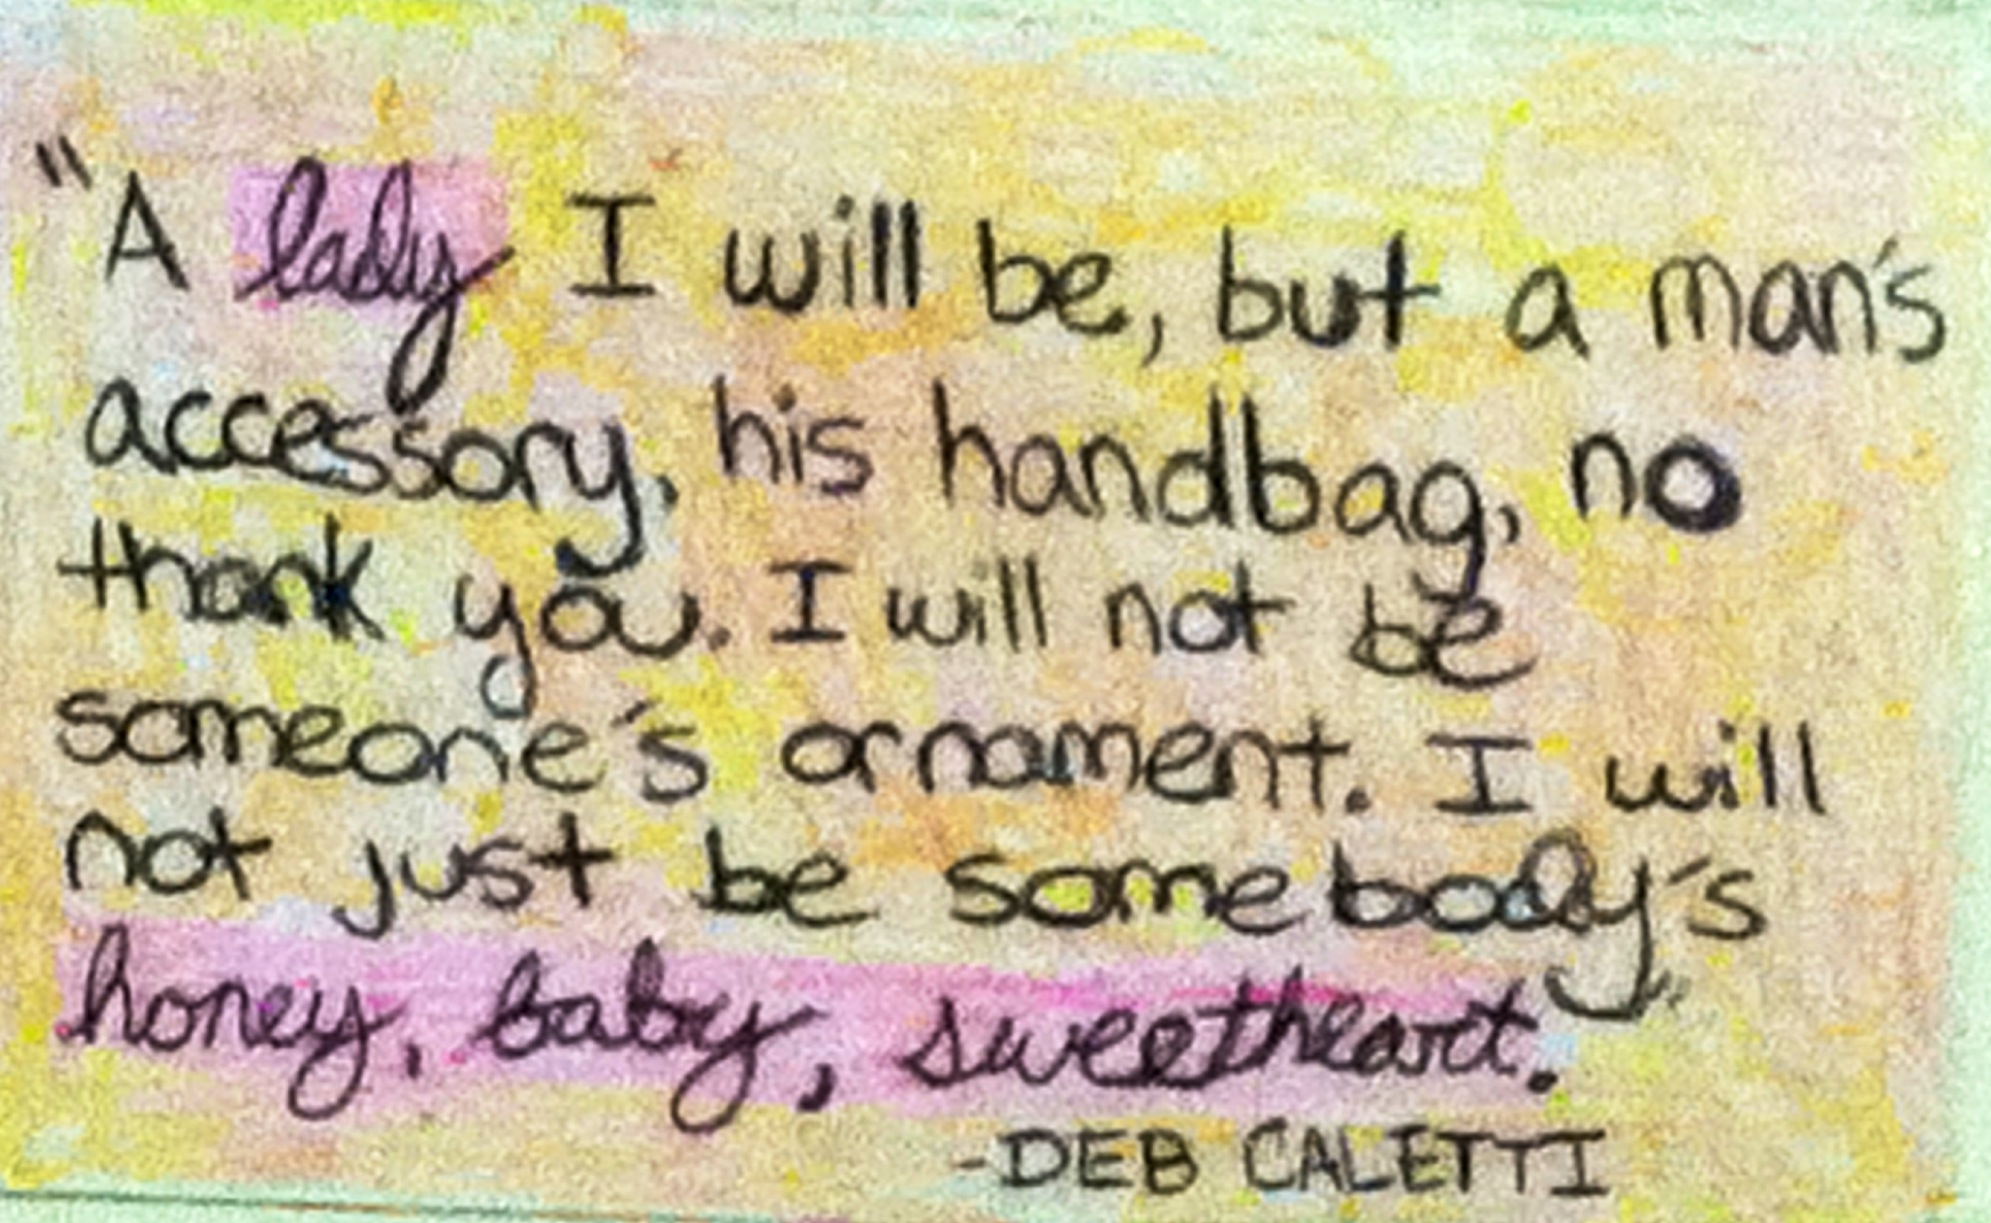 "A lady I will be, but a man's
accessory, his handbag, no
thank you. I will not be
someone's ornament. I will
not just be somebody's
honey, baby, sweetheart."
-DEB CALETTI